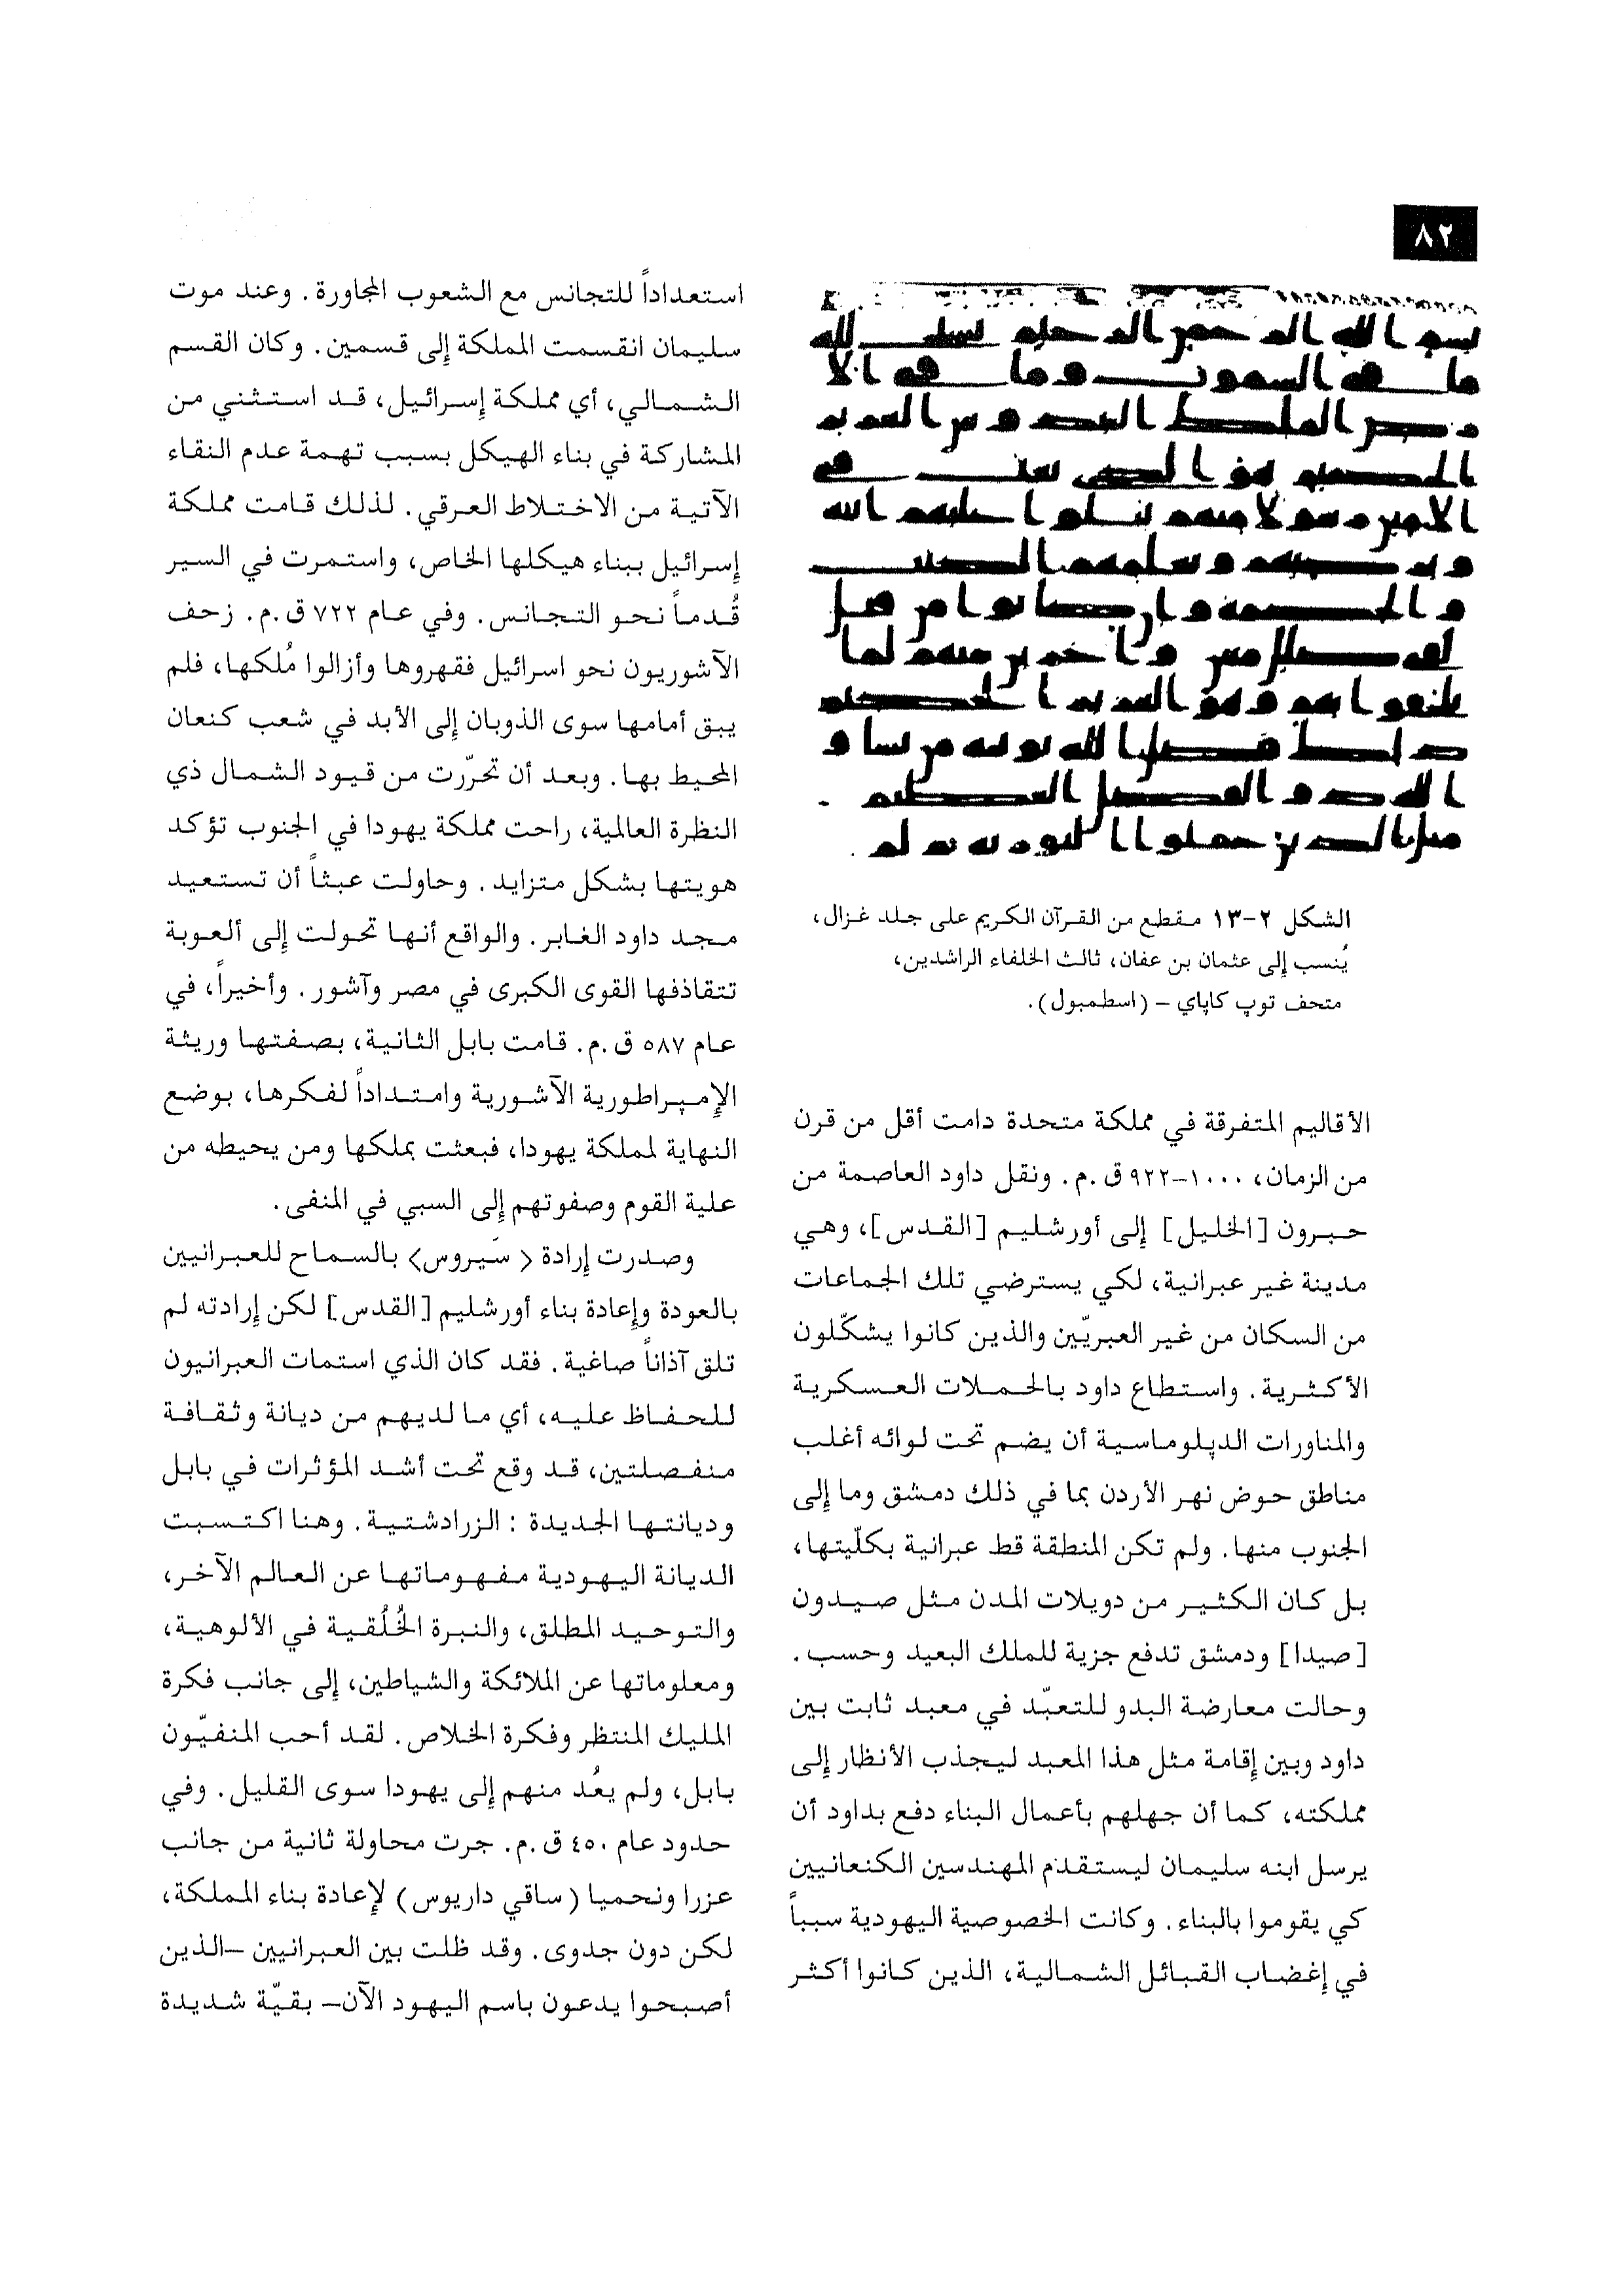 ٨٢
بسم الله الرحمن الرحيم يسبح لله
ما في السموت وما في الا
رض الملك القدوس العزيز
الحكيم هو الذي بعث في
الامين رسولا منهم يتلوا عليهم ايته
ويزكيهم ويعلمهم الكتب
والحكمة وان كانوا من قبل
لفي ضلل مبين واخرين منهم لما
يلحقوا بهم وهو العزيز الحكيم
ذلك فضل الله يوتيه من يشا و
الله ذو الفضل العظيم
مثل الذين حملوا التورية ثم لم
الشكل ٢-١٣ مقطع من القرآن الكريم على جلد غزال،
يُنسب إلى عثمان بن عفان، ثالث الخلفاء الراشدين،
متحف توپ كاپاي - (اسطمبول).
الأقاليم المتفرقة في مملكة متحدة دامت أقل من قرن
من الزمان، ١٠٠٠-٩٢٢ ق.م. ونقل داود العاصمة من
حبرون [الخليل] إلى أورشليم [القدس]، وهي
مدينة غير عبرانية، لكي يسترضي تلك الجماعات
من السكان من غير العبريّين والذين كانوا يشكّلون
الأكثرية. واستطاع داود بالحملات العسكرية
والمناورات الدپلوماسية أن يضم تحت لوائه أغلب
مناطق حوض نهر الأردن بما في ذلك دمشق وما إلى
الجنوب منها. ولم تكن المنطقة قط عبرانية بكلّيتها،
بل كان الكثير من دويلات المدن مثل صيدون
[صيدا] ودمشق تدفع جزية للملك البعيد وحسب.
وحالت معارضة البدو للتعبّد في معبد ثابت بين
داود وبين إقامة مثل هذا المعبد ليجذب الأنظار إلى
مملكته، كما أن جهلهم بأعمال البناء دفع بداود أن
يرسل ابنه سليمان ليستقدم المهندسين الكنعانيين
كي يقوموا بالبناء. وكانت الخصوصية اليهودية سبباً
في إغضاب القبائل الشمالية، الذين كانوا أكثر
استعداداً للتجانس مع الشعوب المجاورة. وعند موت
سليمان انقسمت المملكة إلى قسمين. وكان القسم
الشمالي، أي مملكة إسرائيل، قد استثني من
المشاركة في بناء الهيكل بسبب تهمة عدم النقاء
الآتية من الاختلاط العرقي. لذلك قامت مملكة
إسرائيل ببناء هيكلها الخاص، واستمرت في السير
قُدماً نحو التجانس. وفي عام ٧٢٢ ق.م. زحف
الآشوريون نحو اسرائيل فقهروها وأزالوا مُلكها، فلم
يبق أمامها سوى الذوبان إلى الأبد في شعب كنعان
المحيط بها. وبعد أن تحرّرت من قيود الشمال ذي
النظرة العالمية، راحت مملكة يهودا في الجنوب تؤكد
هويتها بشكل متزايد. وحاولت عبثاً أن تستعيد
مجد داود الغابر. والواقع أنها تحولت إلى ألعوبة
تتقاذفها القوى الكبرى في مصر وآشور. وأخيراً، في
عام ٥٨٧ ق.م. قامت بابل الثانية، بصفتها وريثة
الإمپراطورية الآشورية وامتداداً لفكرها، بوضع
النهاية لمملكة يهودا، فبعثت بملكها ومن يحيطه من
علية القوم وصفوتهم إلى السبي في المنفى.
وصدرت إرادة ⟨سَيروس⟩ بالسماح للعبرانيين
بالعودة وإعادة بناء أورشليم [القدس] لكن إرادته لم
تلق آذاناً صاغية. فقد كان الذي استمات العبرانيون
للحفاظ عليه، أي ما لديهم من ديانة وثقافة
منفصلتين، قد وقع تحت أشد المؤثرات في بابل
وديانتها الجديدة : الزرادشتية. وهنا اكتسبت
الديانة اليهودية مفهوماتها عن العالم الآخر،
والتوحيد المطلق، والنبرة الخُلُقية في الألوهية،
ومعلوماتها عن الملائكة والشياطين، إلى جانب فكرة
المليك المنتظر وفكرة الخلاص. لقد أحب المنفيّون
بابل، ولم يعُد منهم إلى يهودا سوى القليل. وفي
حدود عام ٤٥٠ ق.م. جرت محاولة ثانية من جانب
عزرا ونحميا (ساقي داريوس) لإعادة بناء المملكة،
لكن دون جدوى. وقد ظلت بين العبرانيين -الذين
أصبحوا يدعون باسم اليهود الآن- بقيّة شديدة